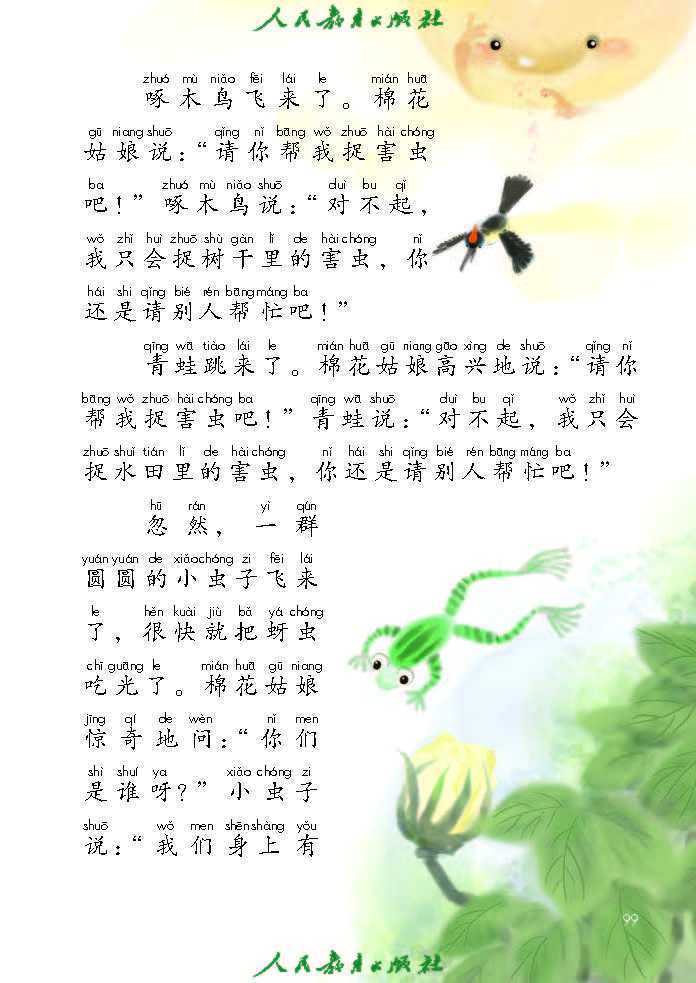 人民教育出版社
zhuó mù niǎo fēi lái le mián huā
啄木鸟飞来了。棉花
gū niang shuō qǐng nǐ bāng wǒ zhuō hài chóng
姑娘说：“请你帮我捉害虫
ba zhuó mù niǎo shuō duì bu qǐ
吧！”啄木鸟说：“对不起，
wǒ zhǐ huì zhuō shù gàn lǐ de hài chóng nǐ
我只会捉树干里的害虫，你
hái shi qǐng bié rén bāng máng ba
还是请别人帮忙吧！”
qīng wā tiào lái le mián huā gū niang gāo xìng de shuō qǐng nǐ
青蛙跳来了。棉花姑娘高兴地说：“请你
bāng wǒ zhuō hài chóng ba qīng wā shuō duì bu qǐ wǒ zhǐ huì
帮我捉害虫吧！”青蛙说：“对不起，我只会
zhuō shuǐ tián lǐ de hài chóng nǐ hái shi qǐng bié rén bāng máng ba
捉水田里的害虫，你还是请别人帮忙吧！”
hū rán yì qún
忽然，一群
yuán yuán de xiǎo chóng zi fēi lái
圆圆的小虫子飞来
le hěn kuài jiù bǎ yá chóng
了，很快就把蚜虫
chī guāng le mián huā gū niang
吃光了。棉花姑娘
jīng qí de wèn nǐ men
惊奇地问：“你们
shì shuí ya xiǎo chóng zi
是谁呀？”小虫子
shuō wǒ men shēn shàng yǒu
说：“我们身上有
99
人民教育出版社